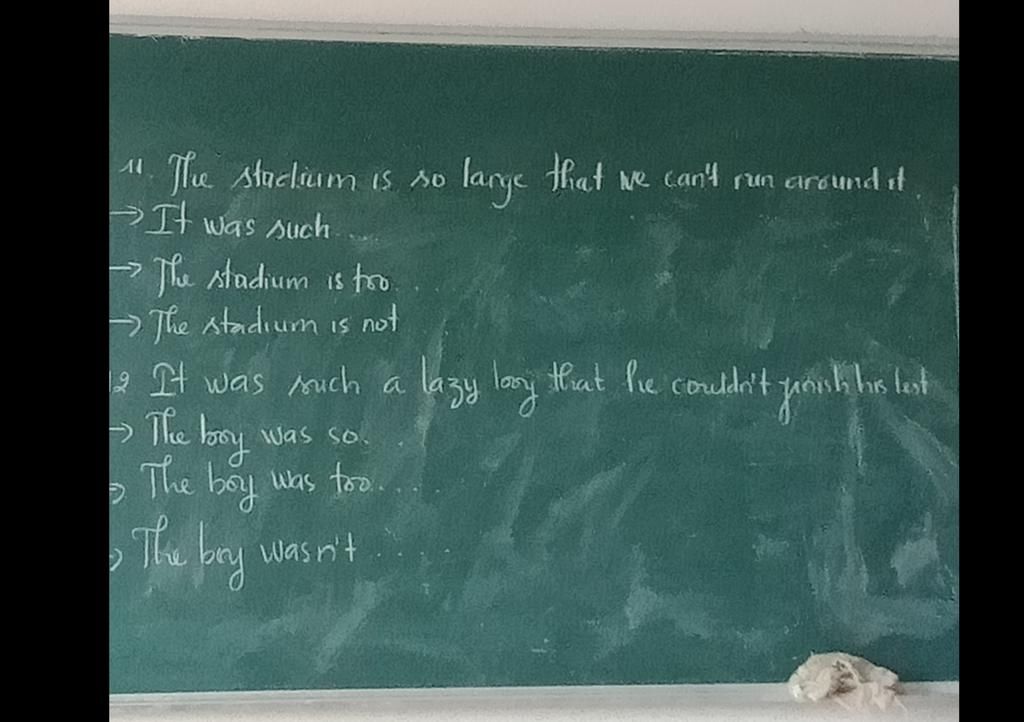 11. The stadium is so large that we can't run around it
→ It was such ....
→ The stadium is too ...
→ The stadium is not
12 It was such a lazy boy that he couldn't finish his test
→ The boy was so. ..
→ The boy was too. ....
→ The boy wasn't .....